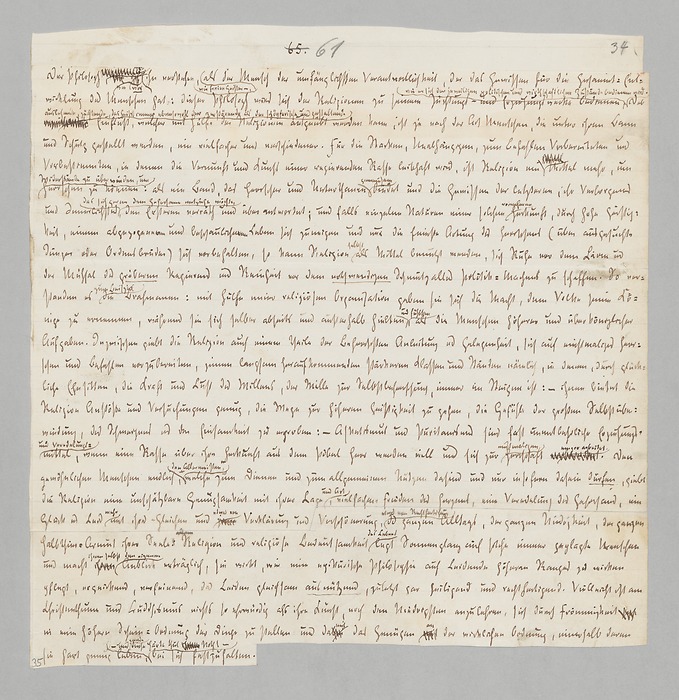 65. 61 34
wie wir wir freien Geister wie er sich der jeweiligen politischen und wirthschaftlichen Zustände bedienen wird.
Der Philosoph, ihn verstehen, als der Mensch der umfänglichsten Verantwortlichkeit, der das Gewissen für die Gesammt-Ent-
wicklung des Menschen hat: dieser Philosoph wird sich der Religionen zu seinem Züchtungs- und Erziehungswerke bedienen, Der
auslesende, züchtende, das heißt immer ebensowohl der zerstörende als der schöpferische und gestaltende
Einfluß, welcher mit Hülfe der Religionen ausgeübt werden kann, ist je nach der Art Menschen, die unter ihren Bann
und Schutz gestellt werden, ein vielfacher und verschiedener. Für die Starken, Unabhängigen, zum Befehlen Vorbereiteten und
Vorbestimmten, in denen die Vernunft und Kunst einer regierenden Rasse leibhaft wird, ist Religion ein Mittel mehr, um
Widerstände zu überwinden, um gemeinsam
herrschen zu können: als ein Band, das Herrscher und Unterthanen bindet und die Gewissen der Letzteren, ihr Verborgenes
das sich gerne dem Gehorsam entziehen möchte, vornehmer
und Innerlichstes, den Ersteren verräth und überantwortet; und falls einzelne Naturen einer solchen Herkunft, durch hohe Geistig-
keit, einem abgezogeneren und beschaulicheren Leben sich zuneigen und nur die feinste Artung des Herrschens (über ausgesuchte
Jünger oder Ordensbrüder) sich vorbehalten, so kann Religion selbst als Mittel benutzt werden, sich Ruhe vor dem Lärm und
der Mühsal des gröberen Regierens und Reinheit vor dem nothwendigen Schmutz alles Politik-Machens zu schaffen. So ver-
standen es zum Beispiel die Brahmanen: mit Hülfe einer religiösen Organisation gaben sie sich die Macht, dem Volke seine Kö-
nige zu ernennen, während sie sich selber abseits und außerhalb hielten und fühlten, als die Menschen höherer und überköniglicher
Aufgaben. Inzwischen giebt die Religion auch einem Theile der Beherrschten Anleitung und Gelegenheit, sich auf einstmaliges Herr-
schen und Befehlen vorzubereiten, jenen langsam heraufkommenden stärkeren Klassen und Ständen nämlich, in denen, durch glück-
liche Ehesitten, die Kraft und Lust des Willens, der Wille zur Selbstbeherrschung, immer im Steigen ist: – ihnen bietet die
Religion Anstöße und Versuchungen genug, die Wege zur höheren Geistigkeit zu gehen, die Gefühle der großen Selbstüber-
windung, des Schweigens und der Einsamkeit zu erproben: – Asketismus und Puritanismus sind fast unentbehrliche Erziehungs-
und Veredelungs-
mittel, wenn eine Rasse über ihre Herkunft aus dem Pöbel Herr werden will und sich zur einstmaligen Herrschaft empor arbeitet. Den
gewöhnlichen Menschen endlich, den Allermeisten, welche zum Dienen und zum allgemeinen Nutzen dasind und nur insofern dasein dürfen, giebt
die Religion eine unschätzbare Genügsamkeit mit ihrer Lage und Art, vielfachen Frieden des Herzens, eine Veredelung des Gehorsams, ein
Glück und Leid mehr mit ihres-Gleichen und Etwas von Verklärung und Verschönerung, Etwas von Rechtfertigung des ganzen Alltags, der ganzen Niedrigkeit, der ganzen
Halbthier-Armut ihrer Seele. Religion und religiöse Bedeutsamkeit des Lebens legt Sonnenglanz auch solche immer geplagte Menschen
und macht ihnen selbst den eigenen Anblick erträglich, sie wirkt, wie eine epikurische Philosophie auf Leidende höheren Ranges zu wirken
pflegt, erquickend, verfeinernd, das Leiden gleichsam ausnützend, zuletzt gar heiligend und rechtfertigend. Vielleicht ist am
Christenthum und Buddhismus nichts so ehrwürdig als ihre Kunst, noch den Niedrigsten anzulehren, sich durch Frömmigkeit
in eine höhere Schein-Ordnung der Dinge zu stellen und damit das Genügen an der wirklichen Ordnung, innerhalb deren
– und gerade diese Härte thut Noth! –
35 sie hart genug leben, bei sich festzuhalten.